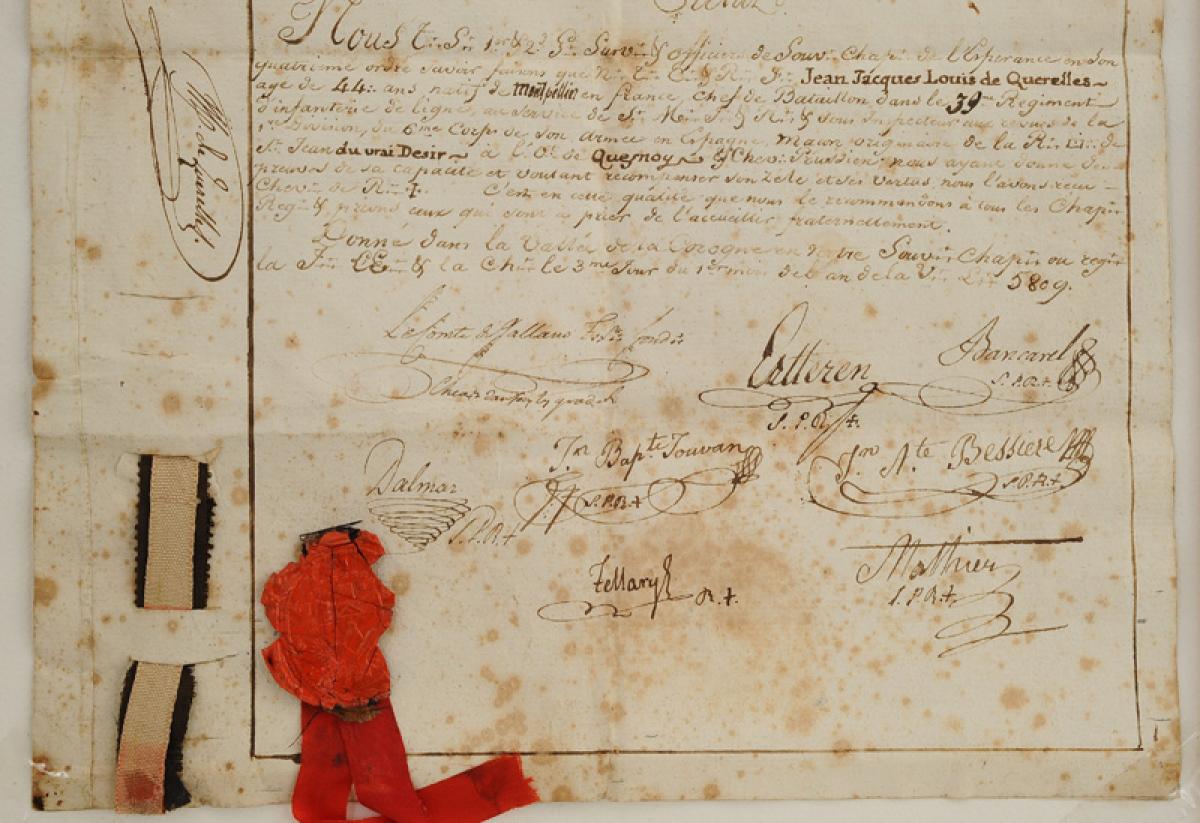 Salut.
Nous T∴ S∴ 1er & 2d Gd Surv∴ & officiers de Souv∴ Chap∴ de l'Esperance en son
quatrieme ordre savoir faisons que N∴ T∴ C∴ & R∴ F∴ Jean Jacques Louis de Querelles~
age de 44∴ ans natif de Montpellier en france, Chef de Bataillon dans le 39me Regiment
d'infanterie de ligne, au service de S∴ M∴ I∴ & R∴ & sous Inspecteur aux revues de la
1re Division, du 6me Corps de son armée en Espagne, Macon originaire de la R∴ de
St Jean du vrai Desir~ à l'O∴ de Quesnoy~ & Chev∴ Prussien: nous ayant donné des
preuves de sa capacité et voulant recompenser son zele et ses vertus nous l'avons recu -
Chev∴ de R∴ ✝. C'est en cette qualité que nous le recommandons à tous les Chap∴
Reg∴ & prions ceux qui sont a prier de l'accueillir fraternellement.
Donné dans la Vallée de la Corogne en notre Souv∴ Chap∴ ou regne
la F∴ l'E∴ & la Ch∴ le 3me Jour du 1er mois de l'an de la V∴ L∴ 5809.
Le Comte de
Bancarel
S∴P∴R∴✝
S∴P∴R∴✝
Jn Bapte Jouvan
S∴P∴R✝
Jn Ate Bessiere
S∴P∴R✝
Dalmas
S∴P∴R✝
R∴✝∴
Mathieu
S∴P∴R✝